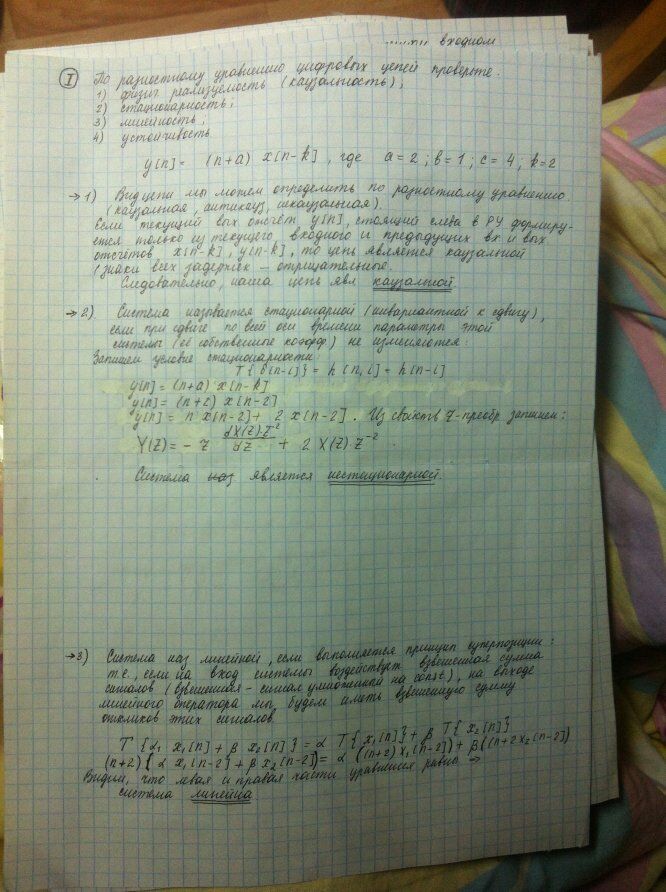 входном
I По разностному уравнению цифровых цепей проверьте:
1) физич реализуемость (каузальность);
2) стационарность;
3) линейность;
4) устойчивость
y[n] = (n+a) x[n-k], где a=2; b=1; c=4; k=2
→1) Вид цепи мы можем определить по разностному уравнению.
(каузальная, антикауз, некаузальная).
Если текущий вых отсчёт y[n], стоящий слева в РУ формиру-
ется только из текущего входного и предыдущих вх и вых
отсчётов x[n-k], y[n-k], то цепь является каузальной
(знаки всех задержек – отрицательные.
Следовательно, наша цепь явл каузальной.
→2) Система называется стационарной (инвариантной к сдвигу),
если при сдвиге по всей оси времени параметры этой
системы (её собственные коэфф) не изменяются:
Запишем условие стационарности:
T{δ[n-i]} = h[n,i] = h[n-i]
y[n] = (n+a) x[n-k]
y[n] = (n+2) x[n-2]
y[n] = n x[n-2] + 2 x[n-2]. Из свойств Z-преобр. запишем:
Y(Z) = - z dX(Z)·Z^-2 / dZ + 2 X(Z) Z^-2.
Система наз является нестационарной.
→3) Система наз линейной, если выполняется принцип суперпозиции:
т.е., если на вход системы воздействует взвешенная сумма
сигналов (взвешенная – сигнал умноженный на const), на выходе
линейного оператора мы будем иметь взвешенную сумму
откликов этих сигналов.
T {α₁ x₁[n] + β x₂[n]} = α T{x₁[n]} + β T{x₂[n]}
(n+2) {α x₁[n-2] + β x₂[n-2]} = α ((n+2) x₁[n-2]) + β((n+2 x₂[n-2])
Видим, что левая и правая части уравнения равны →
система линейна